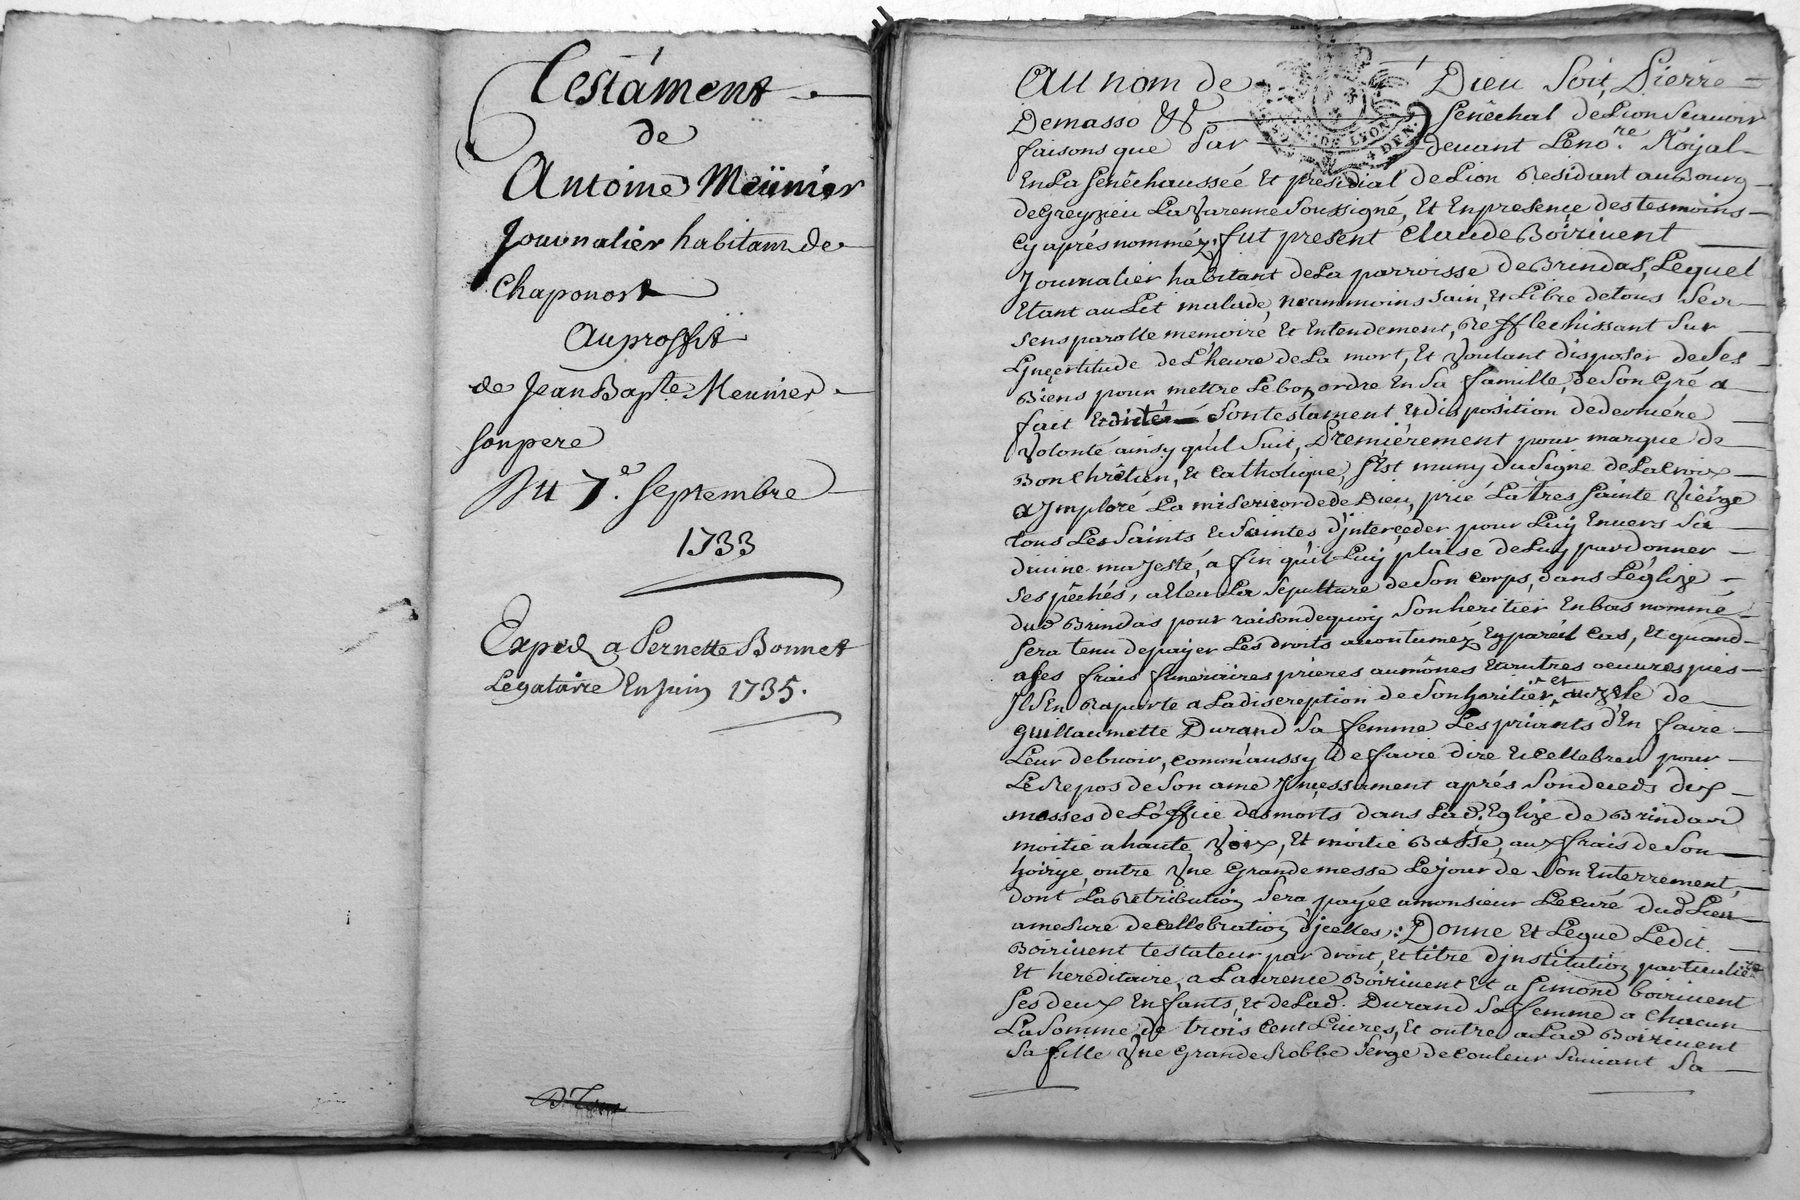 Testament
de
Antoine Meünier
Journalier habitant de
Chaponost
Au proffit
de Jean Bapte. Meunier
son pere
Du 7e. Septembre
1733
Exped a Pernette Bonnet
Legataire En Juin 1735.
Au nom de Dieu soit, Pierre
Demasso &c Senêchal de Lion Scavoir
faisons que Par devant Le nore. Roijal
En La Senêchaussée Et présidial de Lion Residant au Bourg
de Greyzieu La Varenne Soussigné, Et En presence des tesmoins
cy aprés nommez, fut present Claude Boirivent
Journalier habitant de La parroisse de Brindas, Lequel
Etant au Lit malade, neammoins sain, Et Libre de tous Ses
sens parolle memoire Et Entendement, Refflechissant Sur
L'jnçertitude de L'heure de La mort, Et Voulant disposer de Ses
Biens pour mettre Le bon ordre En Sa famille, de Son Gré a
fait Et dicté Son testament Et disposition de derniére
Volonté ainsy qu'il Suit, Premiérement pour marque de
Bon Chrêtien, Et Catholique, S'Est muny du Signe de La Croix
a Jmploré La misericorde de Dieu, prié La tres Sainte Viérge
tous Les Saints Et Saintes d'jnterçeder pour Luy Envers Sa
divine majesté, a fin qu'il Luy plaise de Luy pardonner
Ses pêchés, a Eleu La Sepulture de Son corps, dans L'église
dud Brindas pour raison de quoy Son heritier En bas nommé
Sera tenu de payer Les droits accoutumez En pareil Cas, Et quand
a Ses frais funeraires prieres aumônes Et autres oeuvres pies
Jl S'En Raporte a La discreption de Son heritier et au Zele de
Guillaumette Durand Sa femme Les priants d'En faire
Leur debvoir, comm'aussy de faire dire Et cellebrer pour
Le Repos de Son ame Jnçessament aprés Son deceds dix
messes de L'office des morts dans Lad. Eglize de Brindas
moitié a haute Voix, Et moitié Basse, aux frais de Son
hoirye, outre Vne Grande messe Le jour de Son Enterrement,
dont La Retribution Sera payée a monsieur Le Curé dud Lieu
a mesure de cellebration d'jcelles: Donne Et Legue Ledit
Boirivent testateur par droit, Et titre d'jnstitution particuliere
Et hereditaire, a Laurence Boirivent Et a Simond boirivent
Ses deux Enfants, Et de Lad. Durand Sa femme a Chacun
La Somme de trois Cent Livres, Et outre a Lad Boirivent
Sa fille Vne Grande Robbe Serge de Couleur Suivant Sa